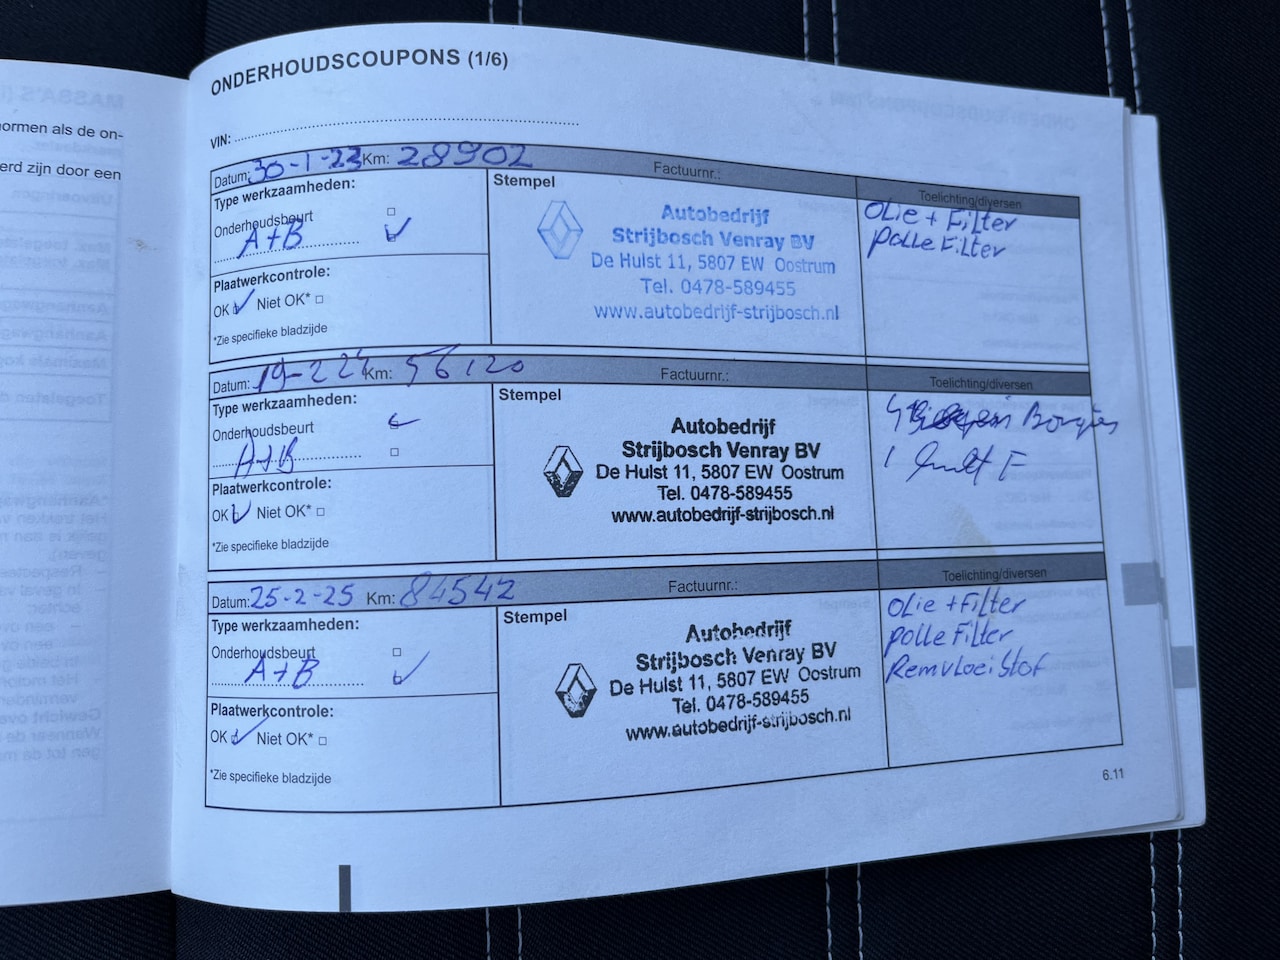 ormen als de on-
erd zijn door een
ONDERHOUDSCOUPONS (1/6)
VIN:
Datum: 30-1-23 Km: 28902 Factuurnr.:
Type werkzaamheden:
Onderhoudsbeurt
A+B
Plaatwerkcontrole:
OK Niet OK*
*Zie specifieke bladzijde
Stempel
Autobedrijf
Strijbosch Venray BV
De Hulst 11, 5807 EW Oostrum
Tel. 0478-589455
www.autobedrijf-strijbosch.nl
Toelichting/diversen
OLie + Filter
polle Filter
Datum: 19-2 24 Km: 56120 Factuurnr.:
Type werkzaamheden:
Onderhoudsbeurt
A+B
Plaatwerkcontrole:
OK Niet OK*
*Zie specifieke bladzijde
Stempel
Autobedrijf
Strijbosch Venray BV
De Hulst 11, 5807 EW Oostrum
Tel. 0478-589455
www.autobedrijf-strijbosch.nl
Toelichting/diversen
Bougies
Datum: 25-2-25 Km: 84542 Factuurnr.:
Type werkzaamheden:
Onderhoudsbeurt
A+B
Plaatwerkcontrole:
OK Niet OK*
*Zie specifieke bladzijde
Stempel
Autobedrijf
Strijbosch Venray BV
De Hulst 11, 5807 EW Oostrum
Tel. 0478-589455
www.autobedrijf-strijbosch.nl
Toelichting/diversen
OLie + Filter
polle Filter
Remvloeistof
6.11